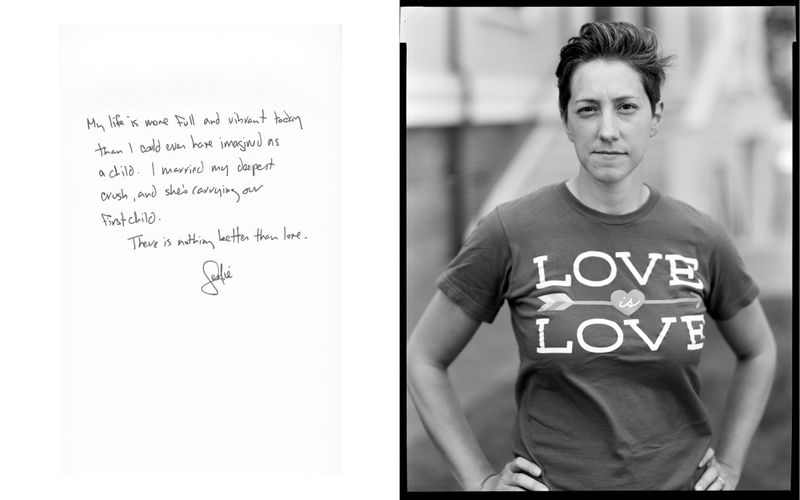 My life is more full and vibrant today
than I could ever have imagined as
a child. I married my deepest
crush, and she's carrying our
first child.
There is nothing better than love.
LOVE
is
LOVE